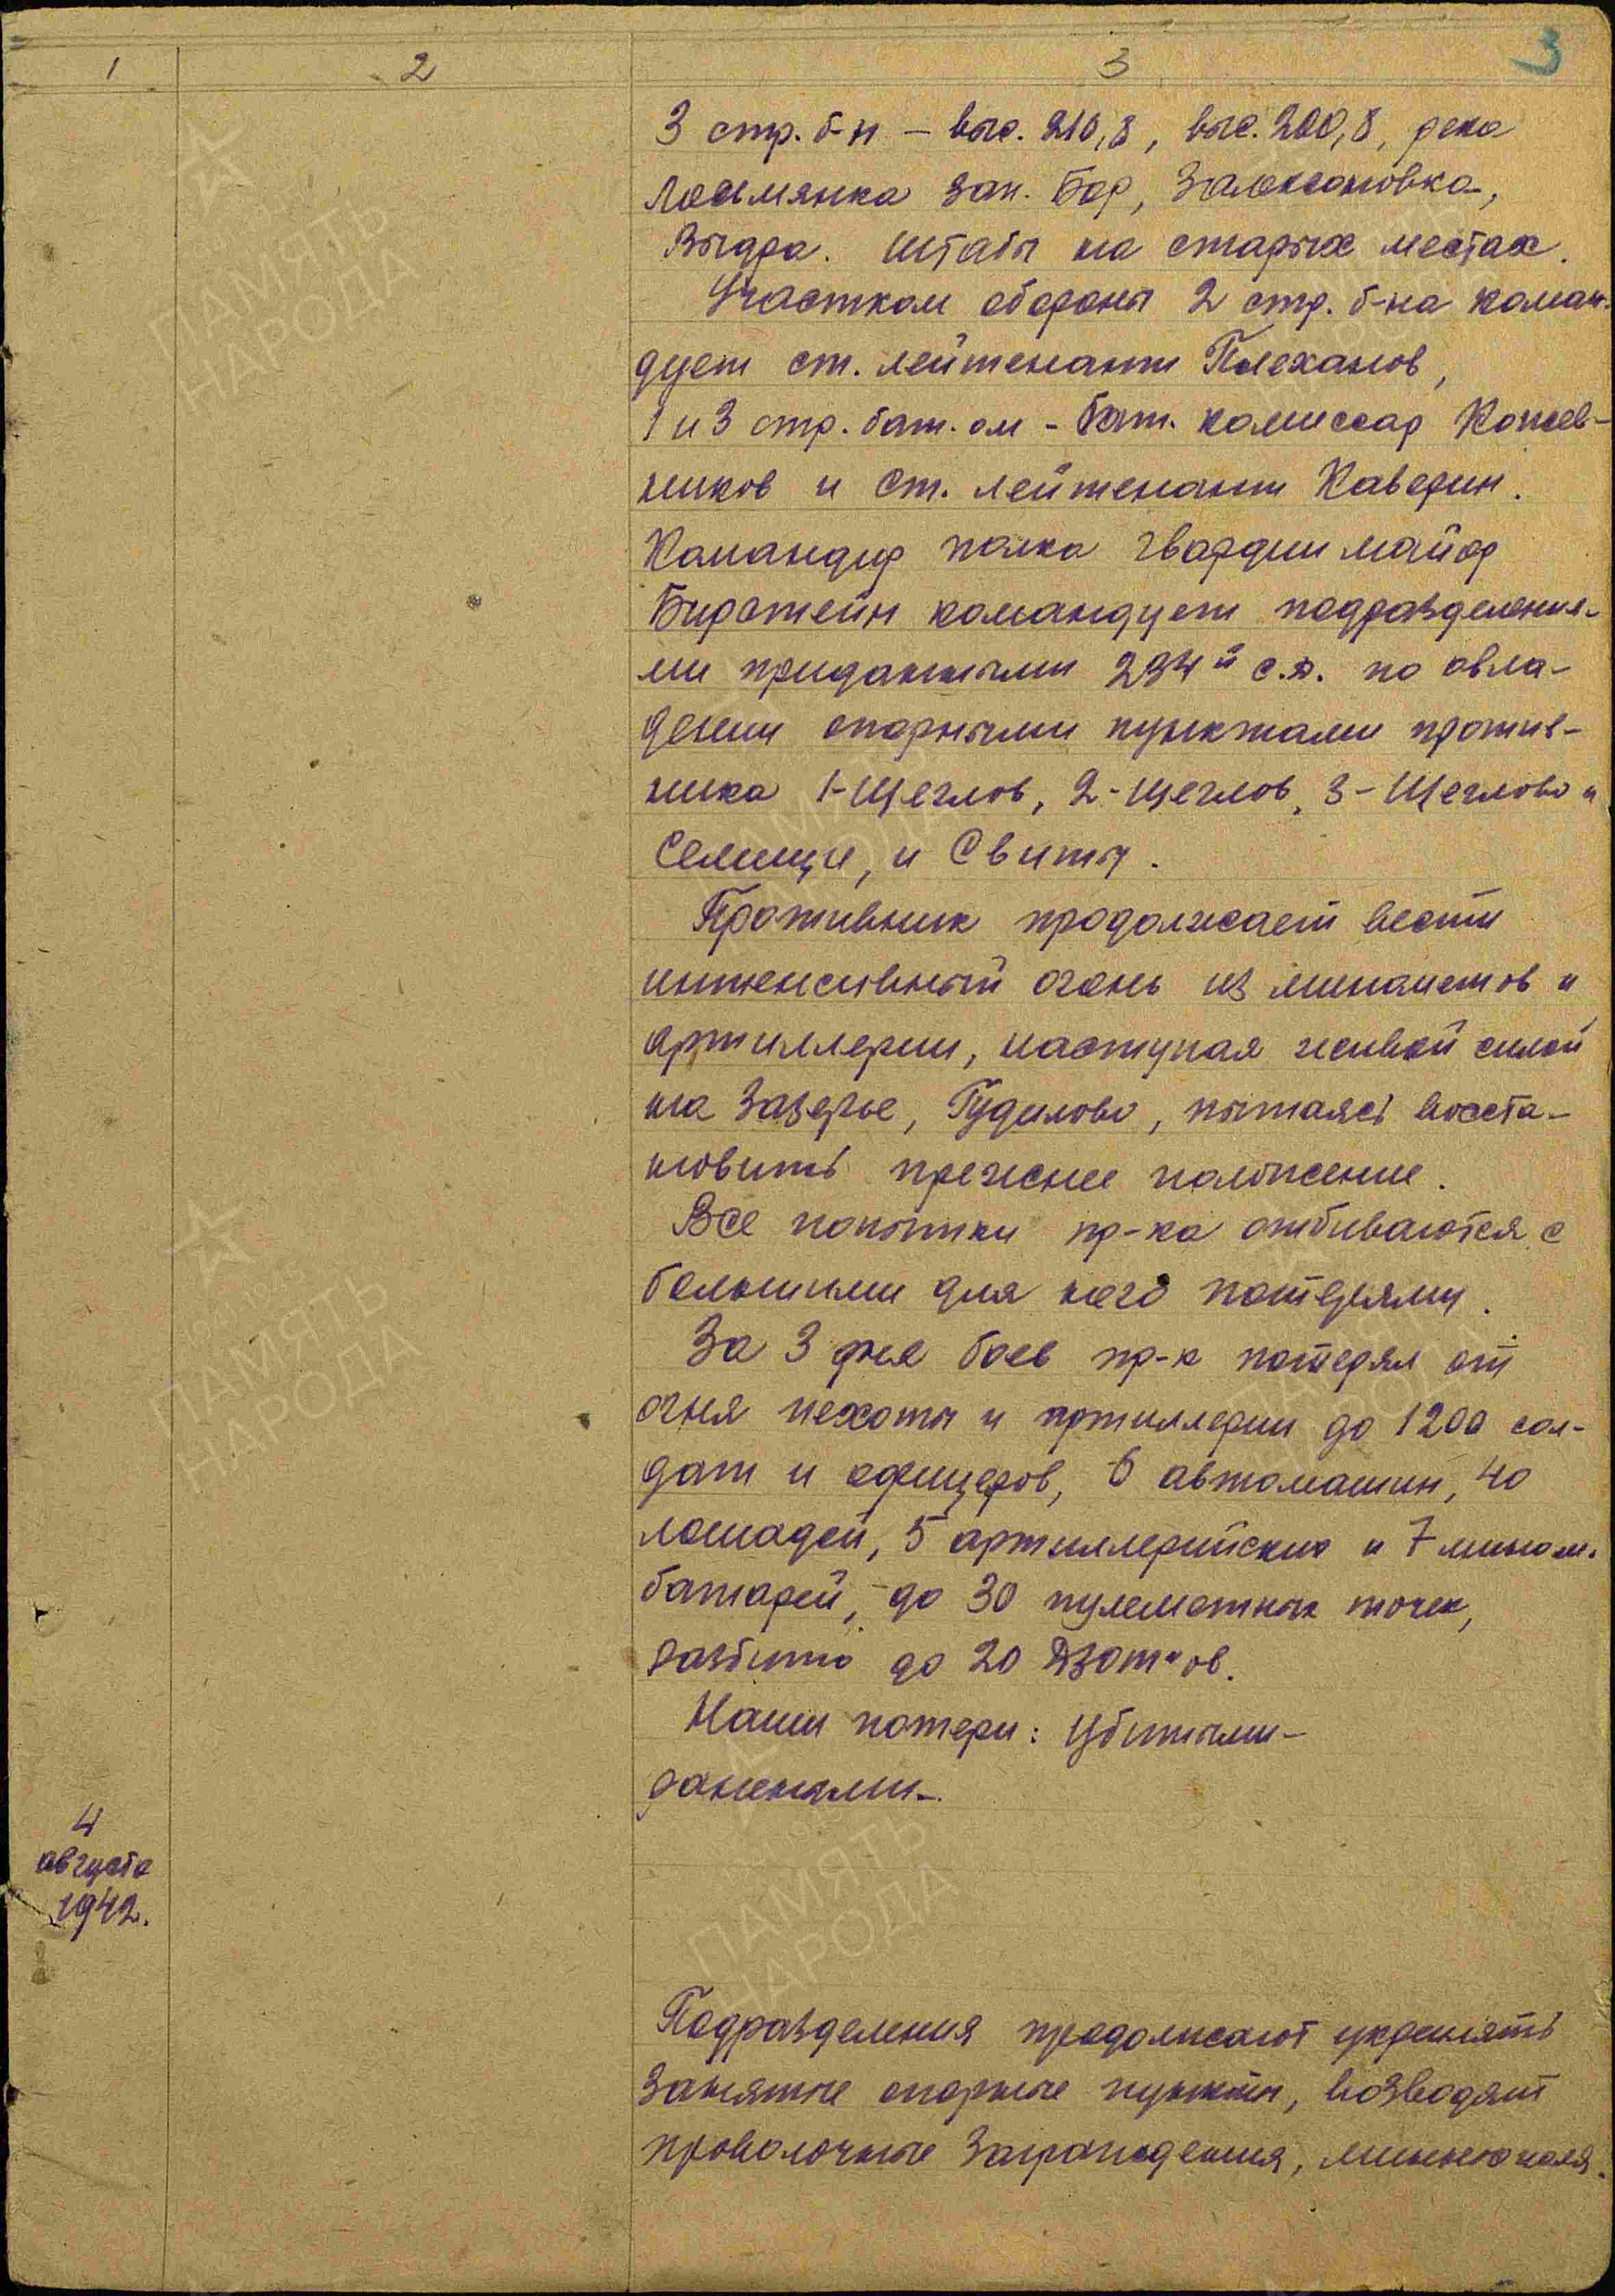 1 2 3 3
3 стр. б-н – выс. 210,8, выс. 200,8, река
Лосьмянка зап. Бор,
Выдра. Штабы на старых местах.
Участком обороны 2 стр. б-на коман-
дует ст. лейтенант Плеханов,
1 и 3 стр. бат. ом - бат. комиссар Кожев-
ников и ст. лейтенант Каверин.
Командир полка гвардии майор
Бирстейн командует подразделения-
ми приданными 234й с.д. по овла-
дении опорными пунктами против-
ника 1-Щеглов, 2-Щеглов, 3-Щеглово и
Селищи, и Свиты.
Противник продолжает вести
интенсивный огонь из минометов и
артиллерии, наступая живой силой
на Зазерье, Гудилово, пытаясь восста-
новить прежнее положение.
Все попытки пр-ка отбиваются с
большими для него потерями.
За 3 дня боев пр-к потерял от
огня пехоты и артиллерии до 1200 сол-
дат и офицеров, 6 автомашин, 40
лошадей, 5 артиллерийских и 7 мином.
батарей, до 30 пулеметных точек,
разбито до 20 Дзот"ов.
Наши потери: убитыми –
ранеными –
4
августа
1942.
Подразделения продолжают укреплять
занятые опорные пункты, возводят
проволочные заграждения, минные поля.
ПАМЯТЬ
НАРОДА
ПАМЯТЬ
НАРОДА
ПАМЯТЬ
НАРОДА